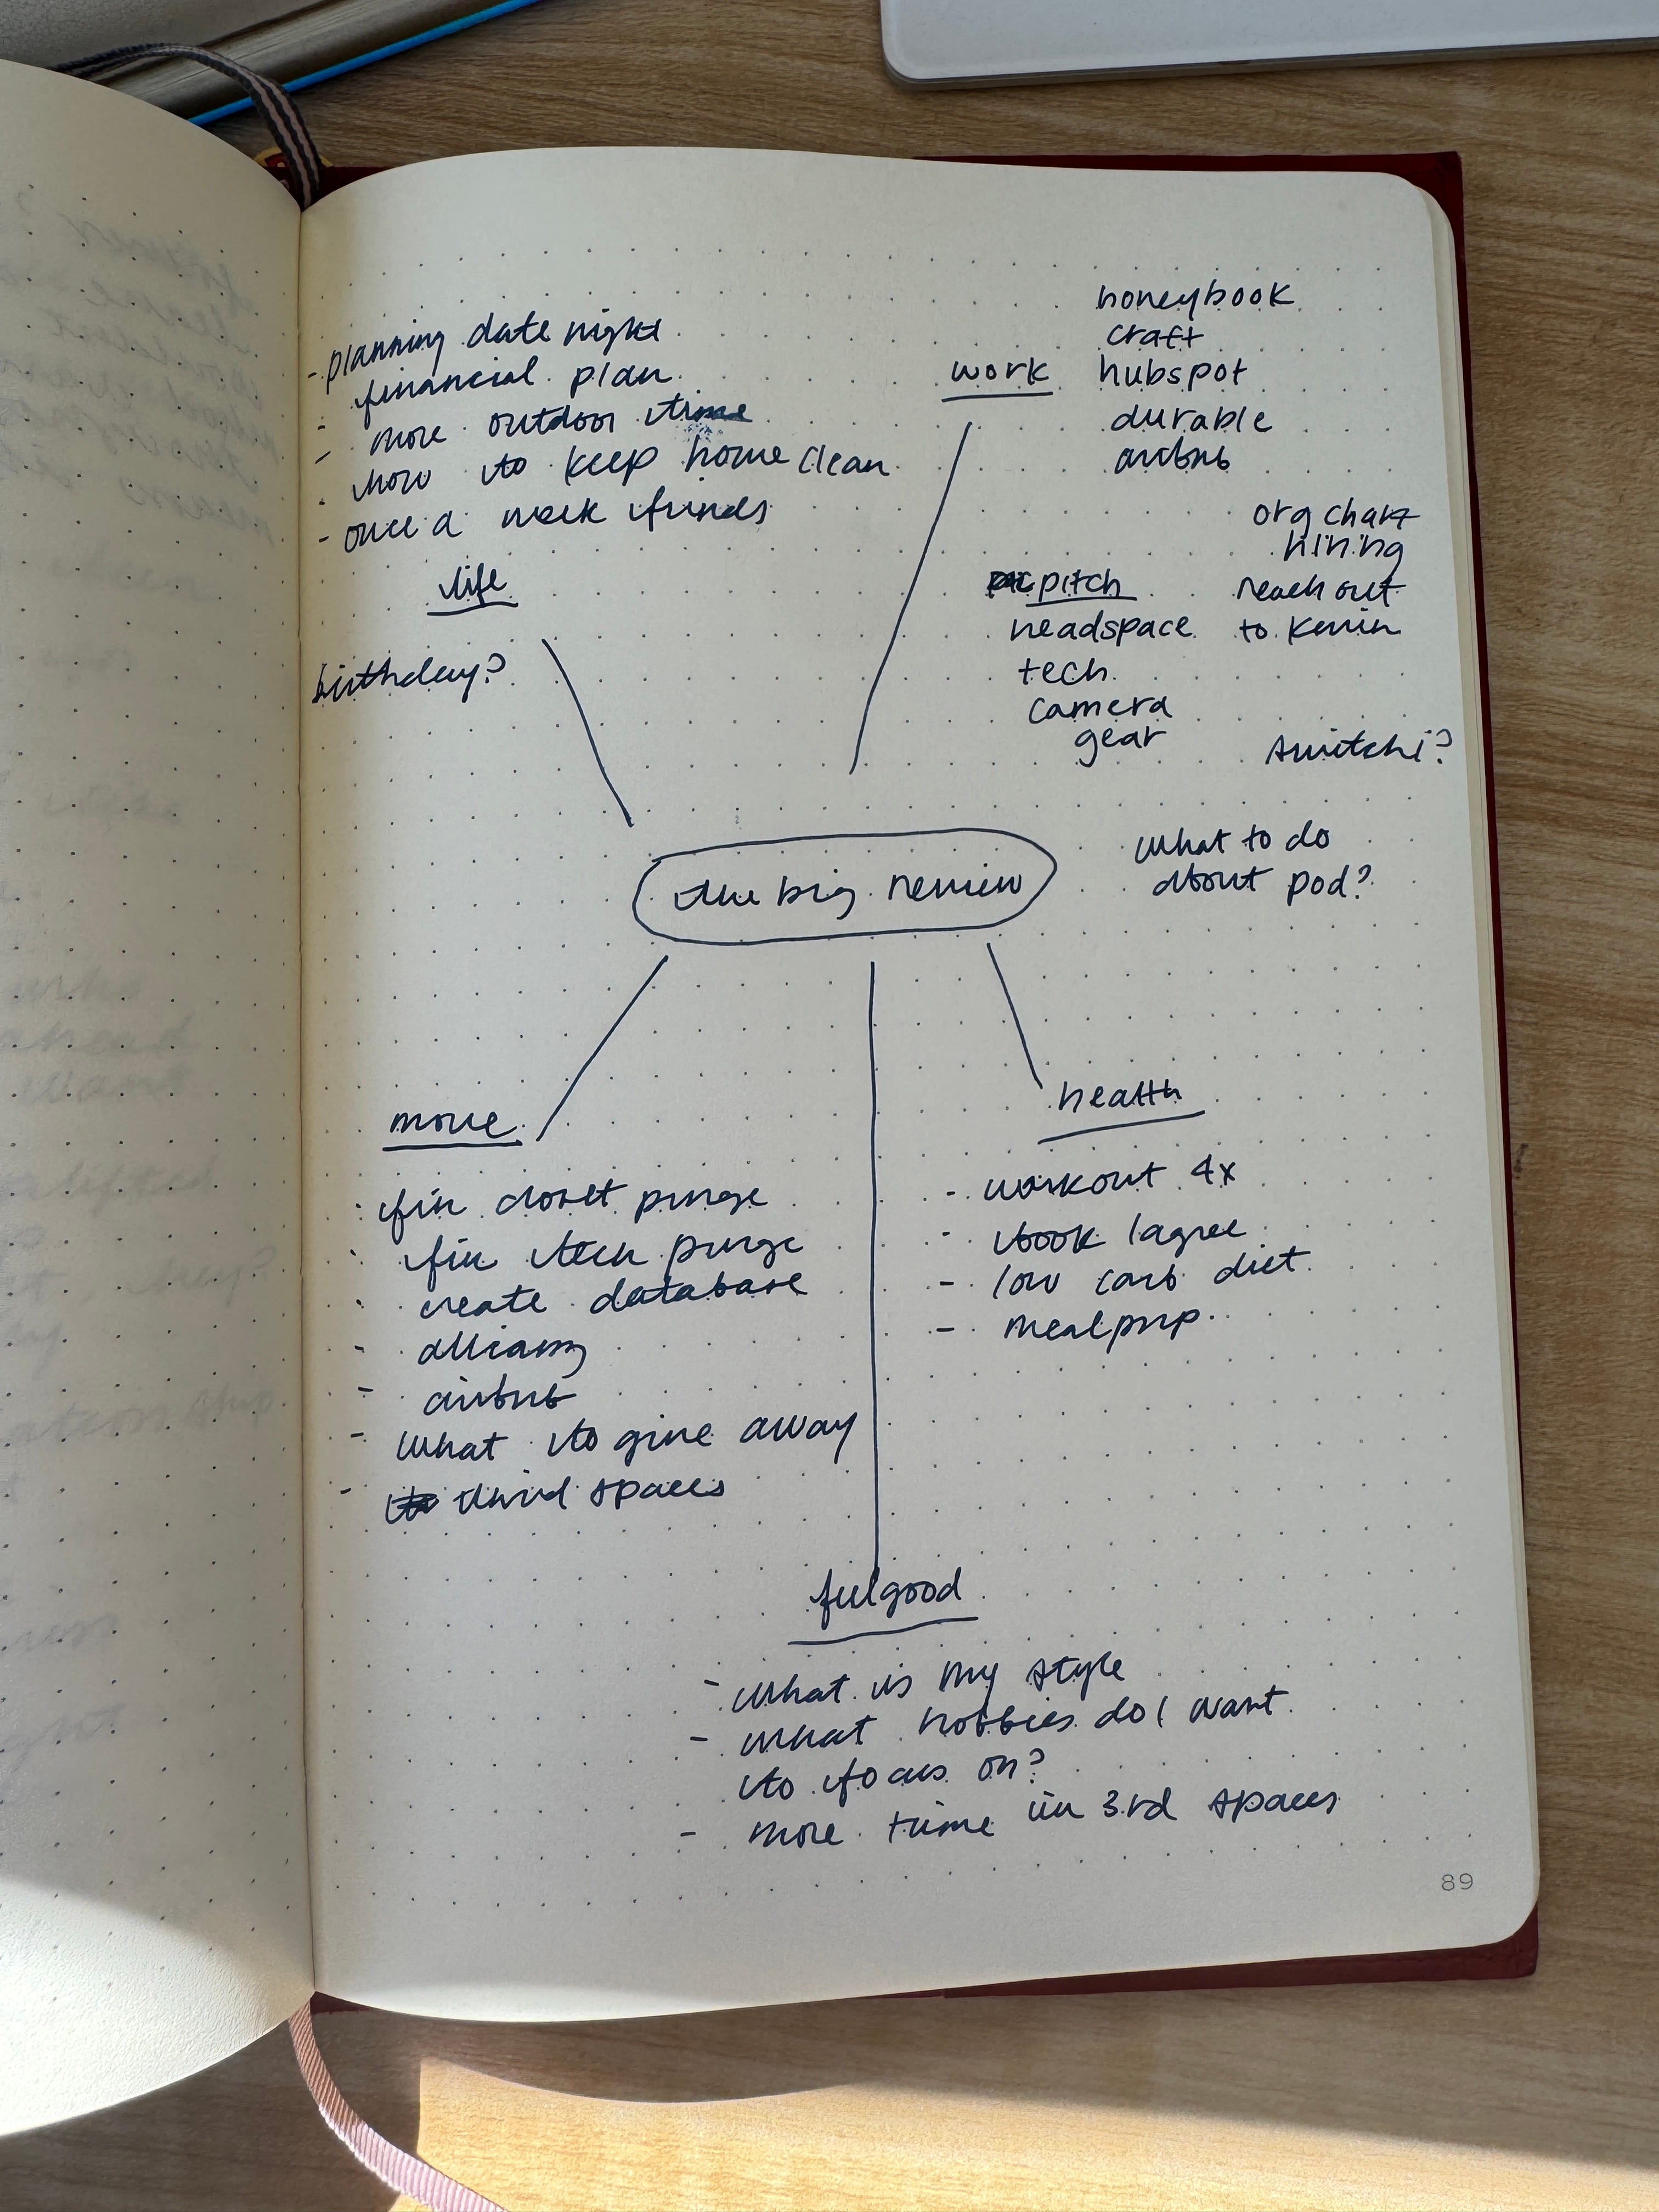 - planning date night
- financial plan
- more outdoor time
- how to keep home clean
- once a week friends
life
birthday?
work
honeybook
craft
hubspot
durable
airbnb
org chart
hiring
reach out
to Kevin
pitch
headspace
tech
camera
gear
switchi?
what to do
about pod?
the big review
move
- fin closet purge
- fin tech purge
- create database
-
- airbnb
- what to give away
- third spaces
health
- workout 4x
- book lagree
- low carb diet
- meal prep
feel good
- what is my style
- what hobbies do I want
to focus on?
- more time in 3rd spaces
89